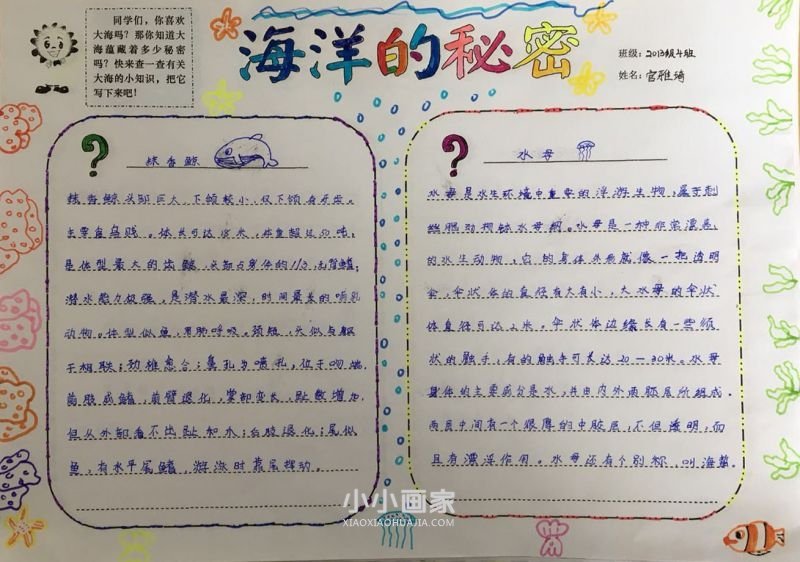 同学们，你喜欢
大海吗？那你知道大
海蕴藏着多少秘密
吗？快来查一查有关
大海的小知识，把它
写下来吧！
海洋的秘密
班级：2013级4班
姓名：官雅绮
?
抹香鲸
抹香鲸头部巨大，下颌较小，仅下颌有牙齿。
主要食乌贼。体长可达18米，体重超过50吨，
是体型最大的齿鲸，头部占身体的1/3，无背鳍；
潜水能力极强，是潜水最深，时间最长的哺乳
动物。体型似鱼，用肺呼吸。颈短，头似与躯
干相联；颈椎愈合；鼻孔为喷孔，位于吻端，
前肢成鳍，前臂退化，掌部变长，趾数增加，
但从外部看不出趾和爪；后肢退化；尾似
鱼，有水平尾鳍，游泳时靠尾摆动。
?
水母
水母是水生环境中重要的浮游生物，属于刺
丝胞动物钵水母纲。水母是一种非常漂亮
的水生动物，它的身体外形就像一把透明
伞，伞状体的直径有大有小，大水母的伞状
体直径可达2米。伞状体边缘长有一些须
状的触手，有的触手可长达20－30米。水母
身体的主要成分是水，并由内外两胚层所组成，
两层中间有一个很厚的中胶层，不但透明，而
且有漂浮作用。水母还有个别称，叫海蜇。
小小画家
XIAOXIAOHUAJIA.COM